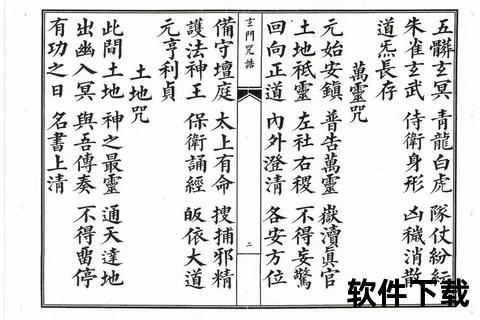 五髒玄冥 青龍白虎 隊仗紛紜
朱雀玄武 侍衛身形 凶穢消散
道炁長存
萬靈咒
元始安鎮 普告萬靈 嶽瀆真官
土地祇靈 左社右稷 不得妄驚
回向正道 內外澄清 各安方位
玄門咒誥
二
備守壇庭 太上有命 搜捕邪精
護法神王 保衛誦經 皈依大道
元亨利貞
土地咒
此間土地 神之最靈 通天達地
出幽入冥 與吾傳奏 不得畱停
有功之日 名書上清
软件下载